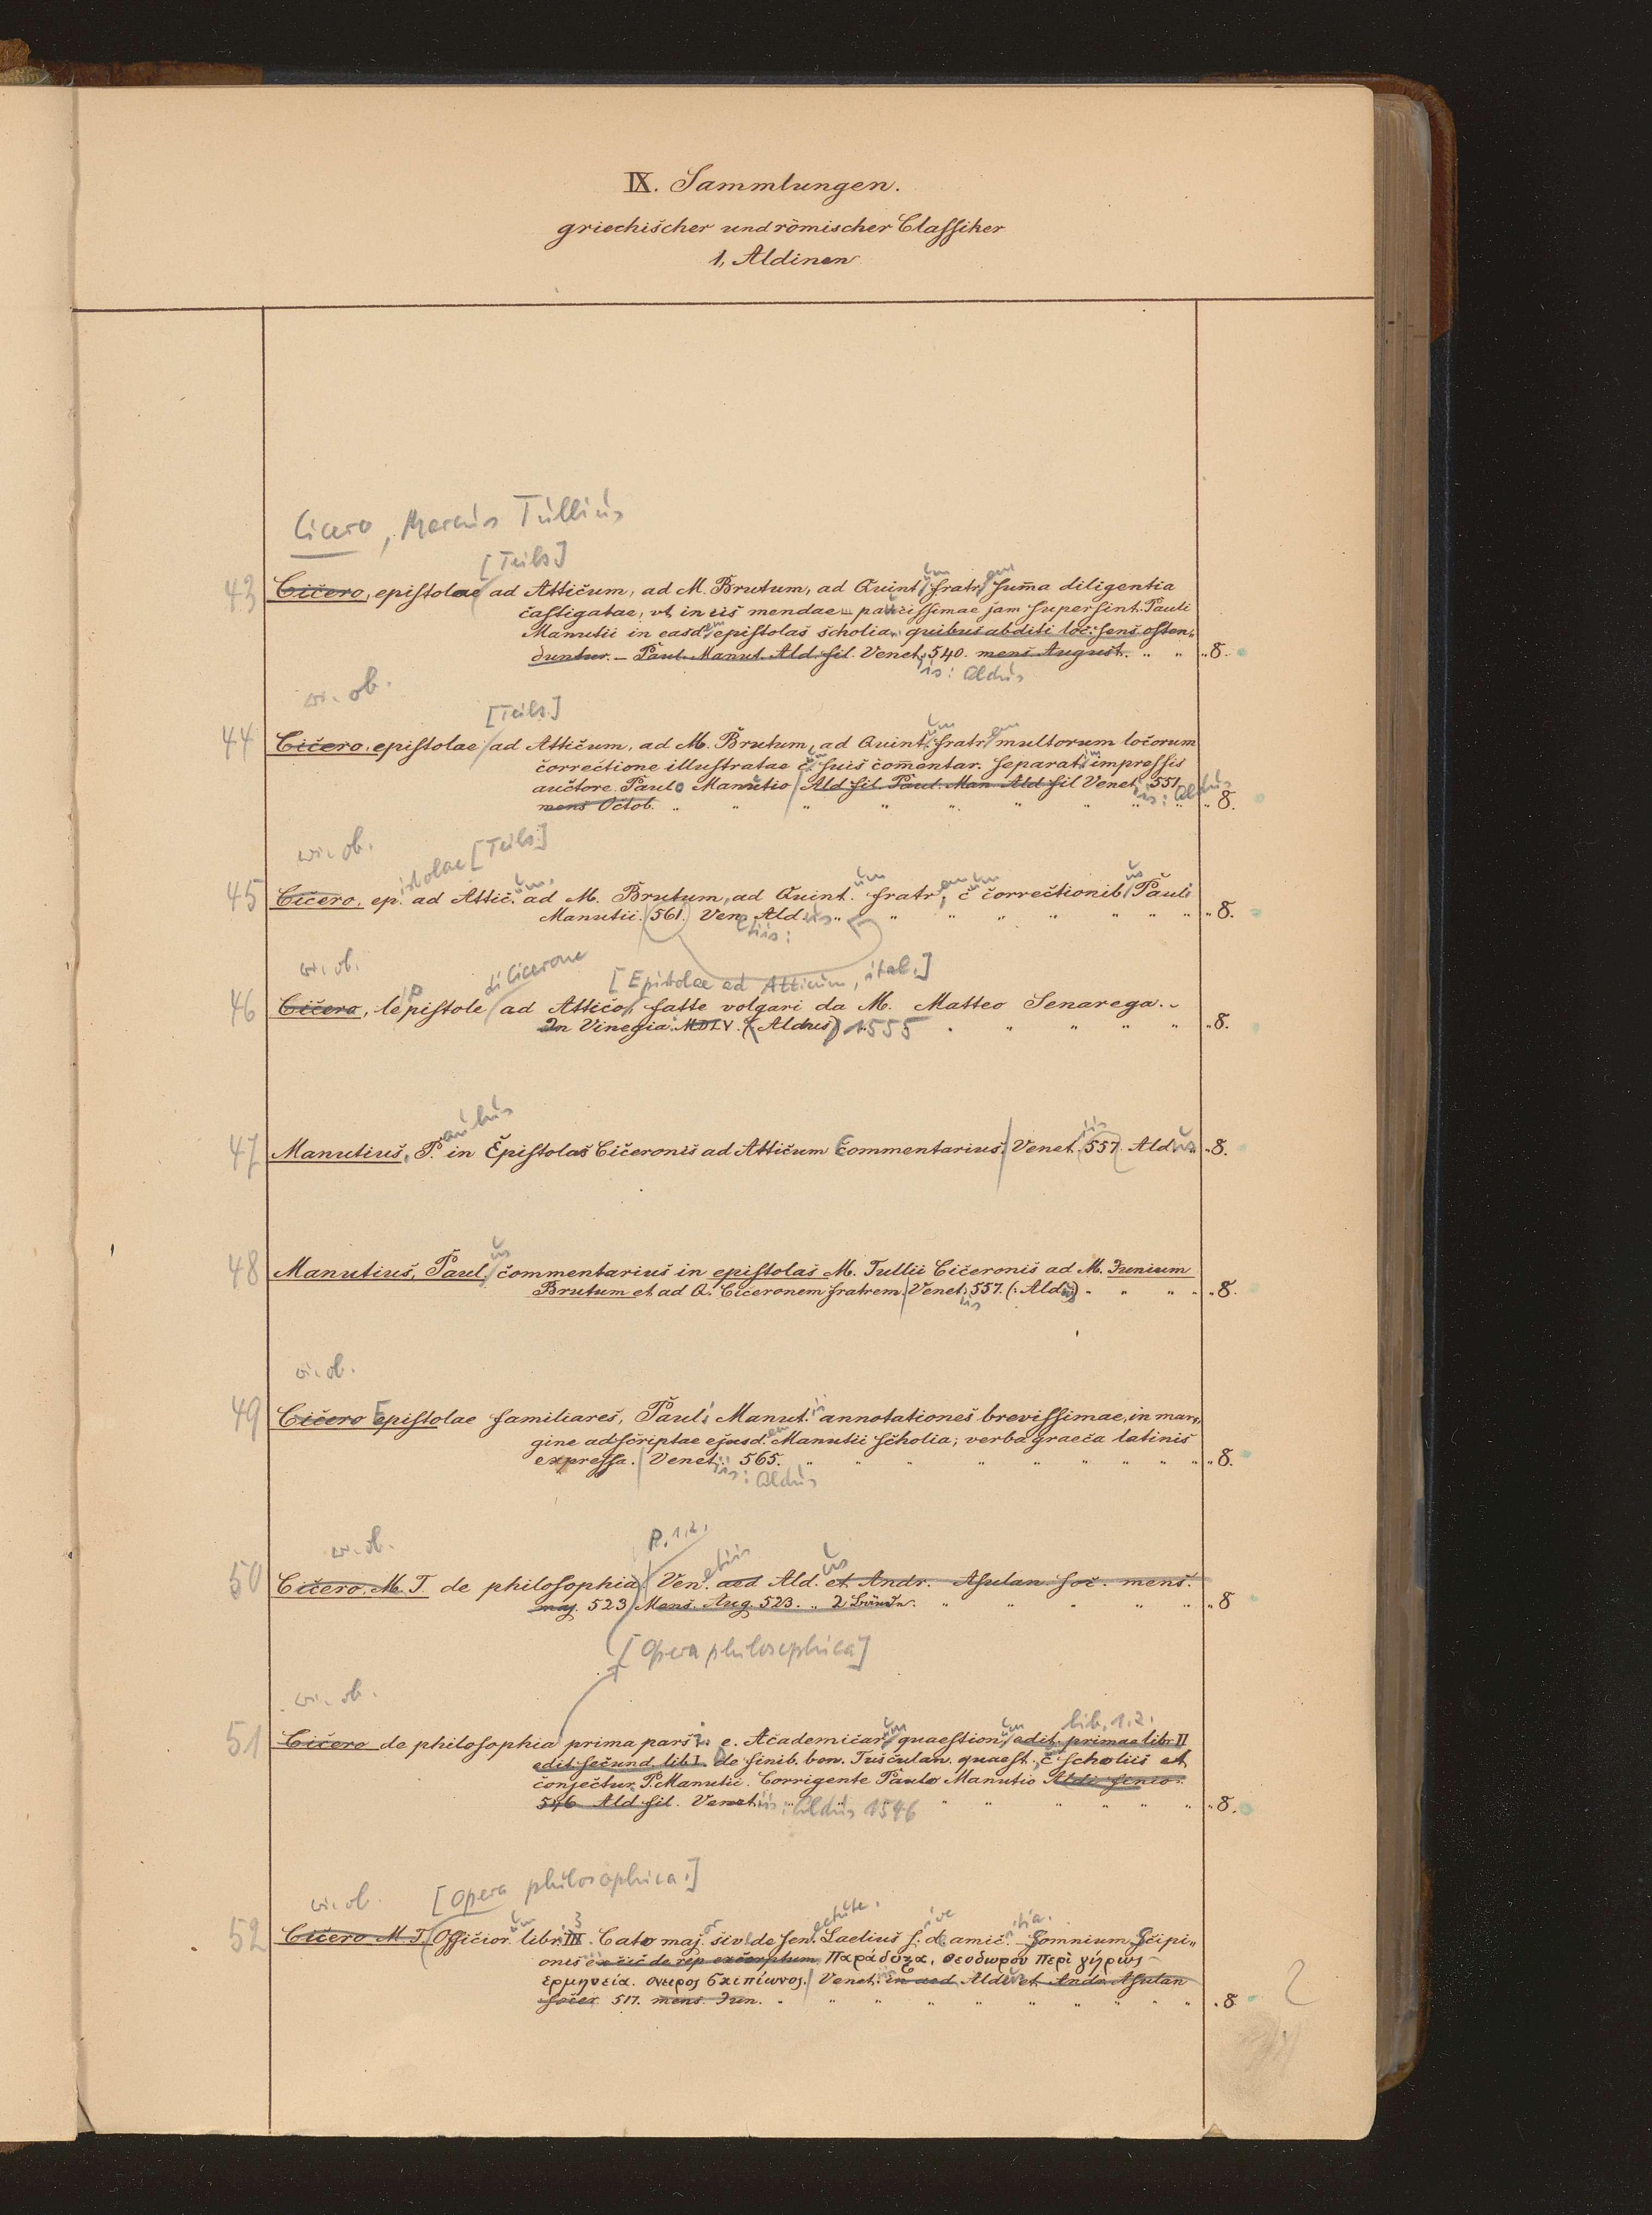 IX. Sammlungen.
griechischer und römischer Classiker
1, Aldinen
Cicero, Marcus Tullius
[Teils.]
43 Cicero, epistolae ad Atticum, ad M. Brutum, ad Quintum fratrem sum̄a diligentia
castigatae, vt in iis mendae paucissimae jam supersint. Pauli
Manutii in easdem epistolas scholia, quibus abditi loc: sens osten„
duntur. — Paul. Manut. Ald fil. Venet. 540. mens August. „ „ „ 8.
iis: Aldus
w. ob.
[Teils.]
44 Cicero, epistolae ad Atticum, ad M. Brutum, ad Quintum fratrem multorum locorum
correctione illustratae cum suis com̄entar. separatim impressis
auctore Paulo Manutio Ald fil. Paul. Man Ald fil Venet. 551.
iis: Aldus
mens Octob. „ „ „ „ „ „ „ „ „ 8.
w. ob.
istolae [Teils.]
45 Cicero, ep. ad Attic.um ad M. Brutum, ad Quint.um fratrem, cum correctionibus Pauli
Manutii. 561. Ven. Aldus „ „ „ „ „ „ „ „ 8.
etiis:
w. ob.
di Cicerone [Epistolae ad Atticum, ital.]
46 Cicero, le pistole ad Attico, fatte volgari da M. Matteo Senarega.
In Vinegia MDLV. (Aldus) 1555 „ „ „ „ „ „ 8.
47 Manutius, P.aulus in Epistolas Ciceronis ad Atticum Commentarius. Venetiis 557. Aldus „ 8.
48 Manutius, Paul.us commentarius in epistolas M. Tullii Ciceronis ad M. Junium
Brutum et ad Q. Ciceronem fratrem. Venet. 557. (: Aldus) „ „ „ „ „ 8.
iis
w. ob.
49 Cicero Epistolae familiares, Pauli Manut.ii annotationes brevissimae, in mar„
gine adscriptae ejusd.em Manutii scholia; verba graeca latinis
expressa. Venet. 565. „ „ „ „ „ „ „ „ „ 8.
iis: Aldus
w. ob.
P. 1.2.
50 Cicero, M. T. de philosophia. Ven.etiis aed Ald.us et Andr. Asulan. soc. mens.
maj. 523. Mens. Aug. 523. „ 2 Bände. „ „ „ „ „ „ 8
[Opera philosophica]
w. ob.
lib. 1.2.
51 Cicero de philosophia prima pars i. e. Academicarum quaestionum edit. primae libr II
edit. secund. lib I. De finib. bon. Tusculan. quaest., c scholiis et
conjectur. P. Manutii. Corrigente Paulo Manutio Aldi senio.
546 Ald fil. Venetiis: Aldus 1546 „ „ „ „ „ 8.
w. ob. [Opera philosophica.]
52 Cicero M. T. Officior.um libr. III. 3 Cato major sive de senectute. Laelius sive de amicitia. Somnium Scipi„
onis ex sic de rep excerptum. Παράδοξα. Θεοδωρου περὶ γήρως
ἑρμηνεία. ονειρος Σκιπίωνος. Venet. in aed Aldus et Andr. Asulan
socer. 517. mens. Jun. „ „ „ „ „ „ „ „ „ 8
2